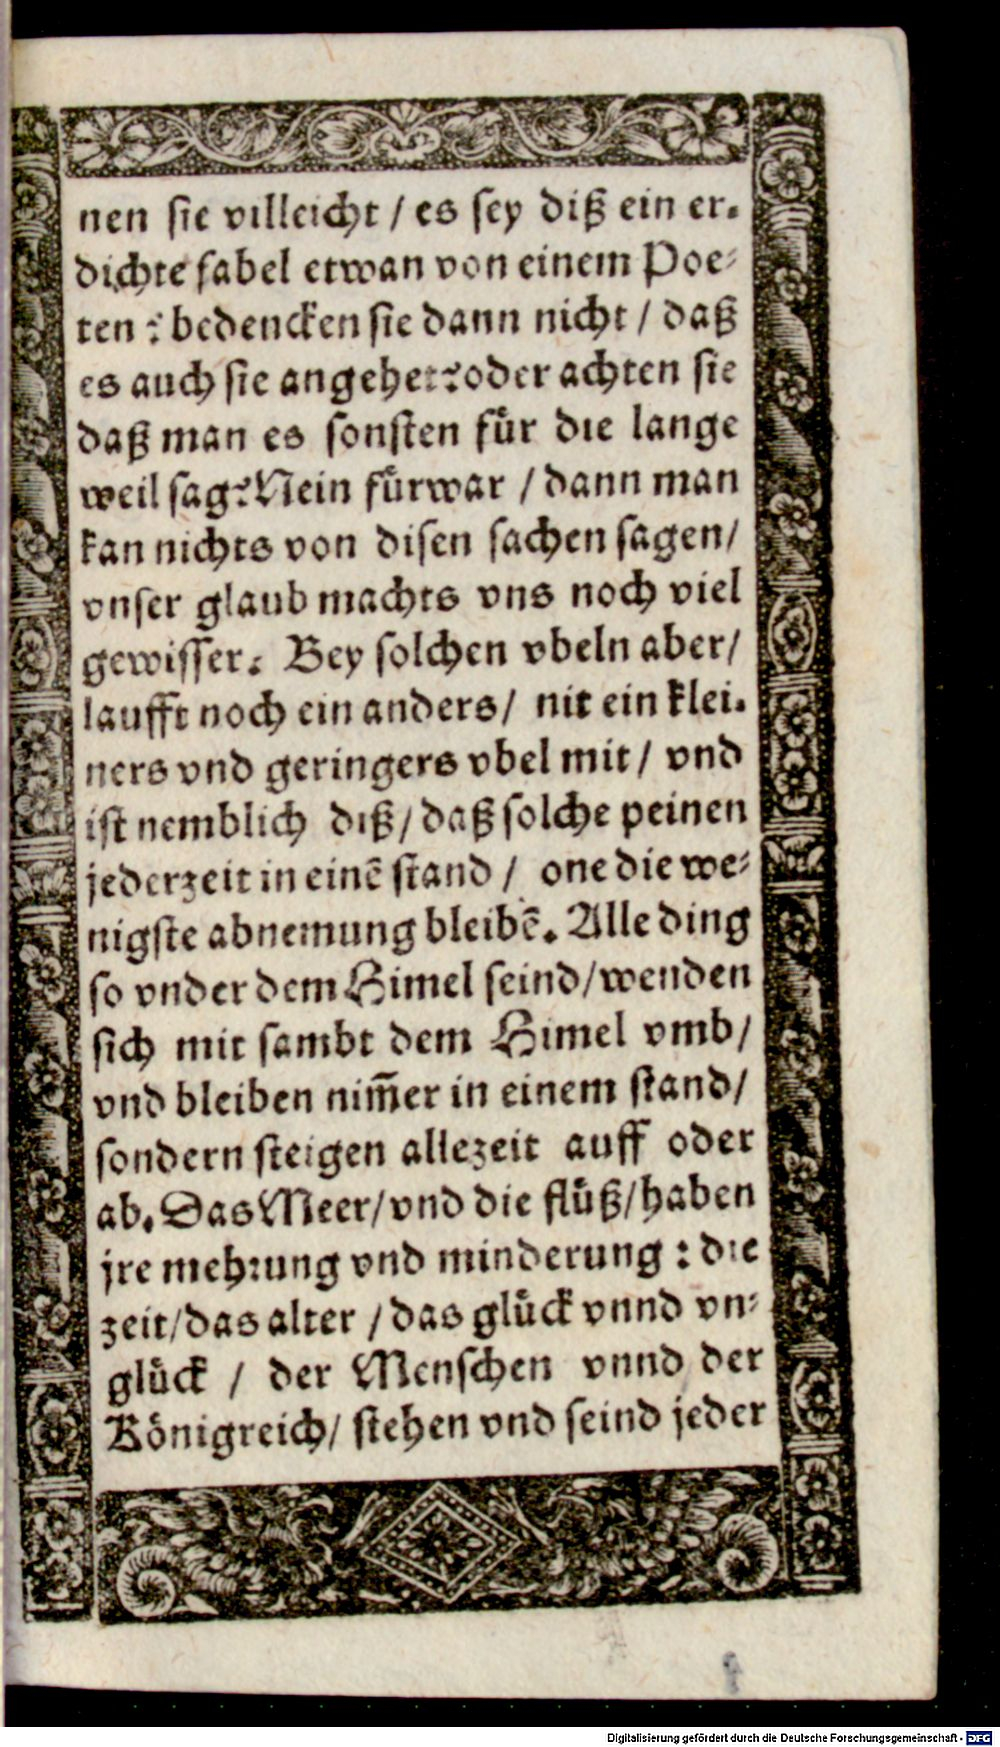 nen sie villeicht / es sey diß ein er-
dichte fabel etwan von einem Poe-
ten? bedencken sie dann nicht / daß
es auch sie angehet? oder achten sie
daß man es sonsten für die lange
weil sag? Nein fürwar / dann man
kan nichts von disen sachen sagen/
vnser glaub machts vns noch viel
gewisser. Bey solchen vbeln aber/
laufft noch ein anders/ nit ein klei-
ners vnd geringers vbel mit/ vnd
ist nemblich diß/ daß solche peinen
jederzeit in einē stand / one die we-
nigste abnemung bleibē. Alle ding
so vnder dem Himel seind/wenden
sich mit sambt dem Himel vmb/
vnd bleiben nim̄er in einem stand/
sondern steigen allezeit auff oder
ab. Das Meer/vnd die flüß/haben
jre mehrung vnd minderung : die
zeit/das alter / das glück vnnd vn-
glück / der Menschen vnnd der
Königreich/ stehen vnd seind jeder
Digitalisierung gefördert durch die Deutsche Forschungsgemeinschaft - DFG